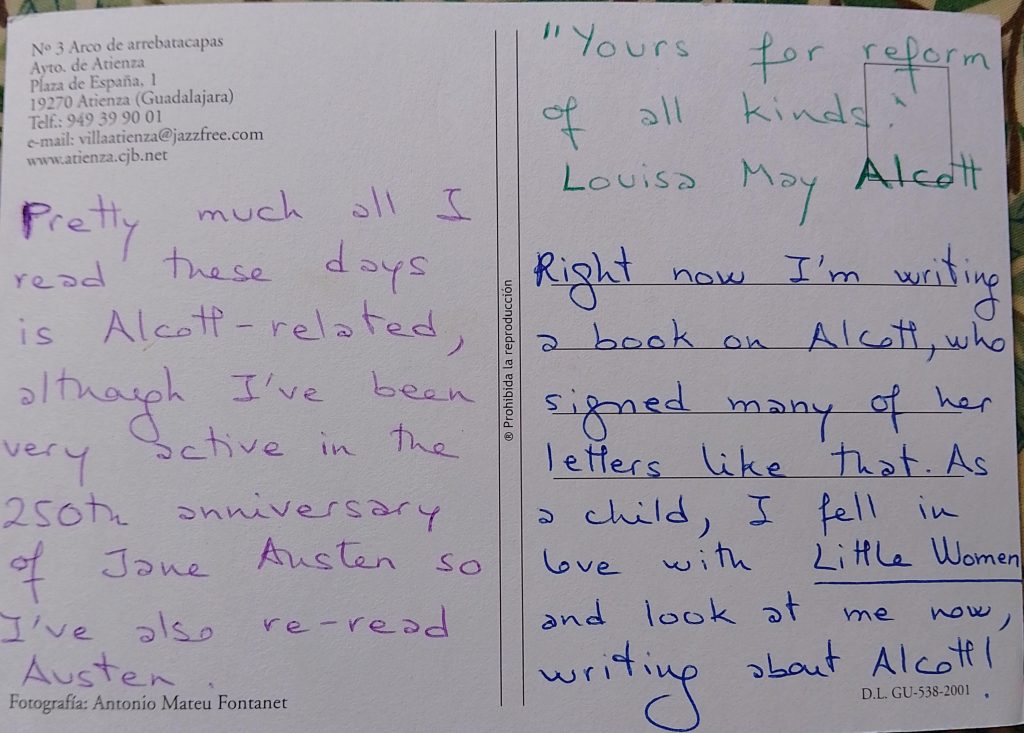 Nº 3 Arco de arrebatacapas
Ayto. de Atienza
Plaza de España, 1
19270 Atienza (Guadalajara)
Telf.: 949 39 90 01
e-mail: villaatienza@jazzfree.com
www.atienza.cjb.net
Pretty much all I
read these days
is Alcott-related,
although I've been
very active in the
250th anniversary
of Jane Austen so
I've also re-read
Austen.
Fotografía: Antonio Mateu Fontanet
® Prohibida la reproducción
"Yours for reform
of all kinds."
Louisa May Alcott
Right now I'm writing
a book on Alcott, who
signed many of her
letters like that. As
a child, I fell in
love with Little Women
and look at me now,
writing about Alcott!
D.L. GU-538-2001